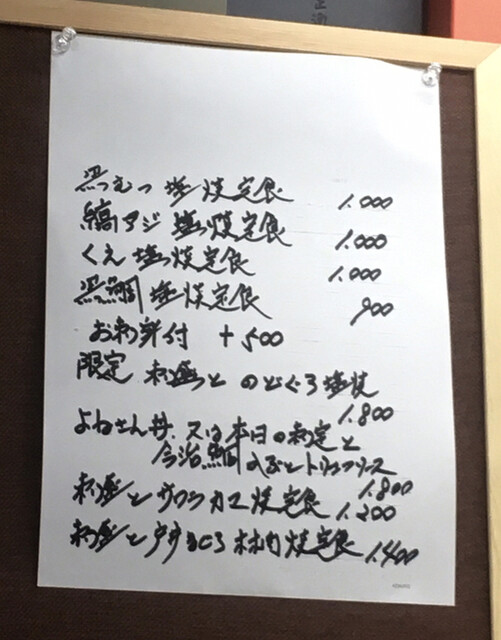 黒むつ 塩焼定食 1.000
縞アジ 塩焼定食 1.000
くえ 塩焼定食 1.000
黒鯛 塩焼定食 900
お刺身付 +500
限定 刺盛と のどぐろ塩焼
1.800
よねさん丼 又は本日の刺定と
今治鯛 トリュフソース
1.800
刺盛とサワラカマ焼定食 1.200
刺盛と 焼定食 1.400